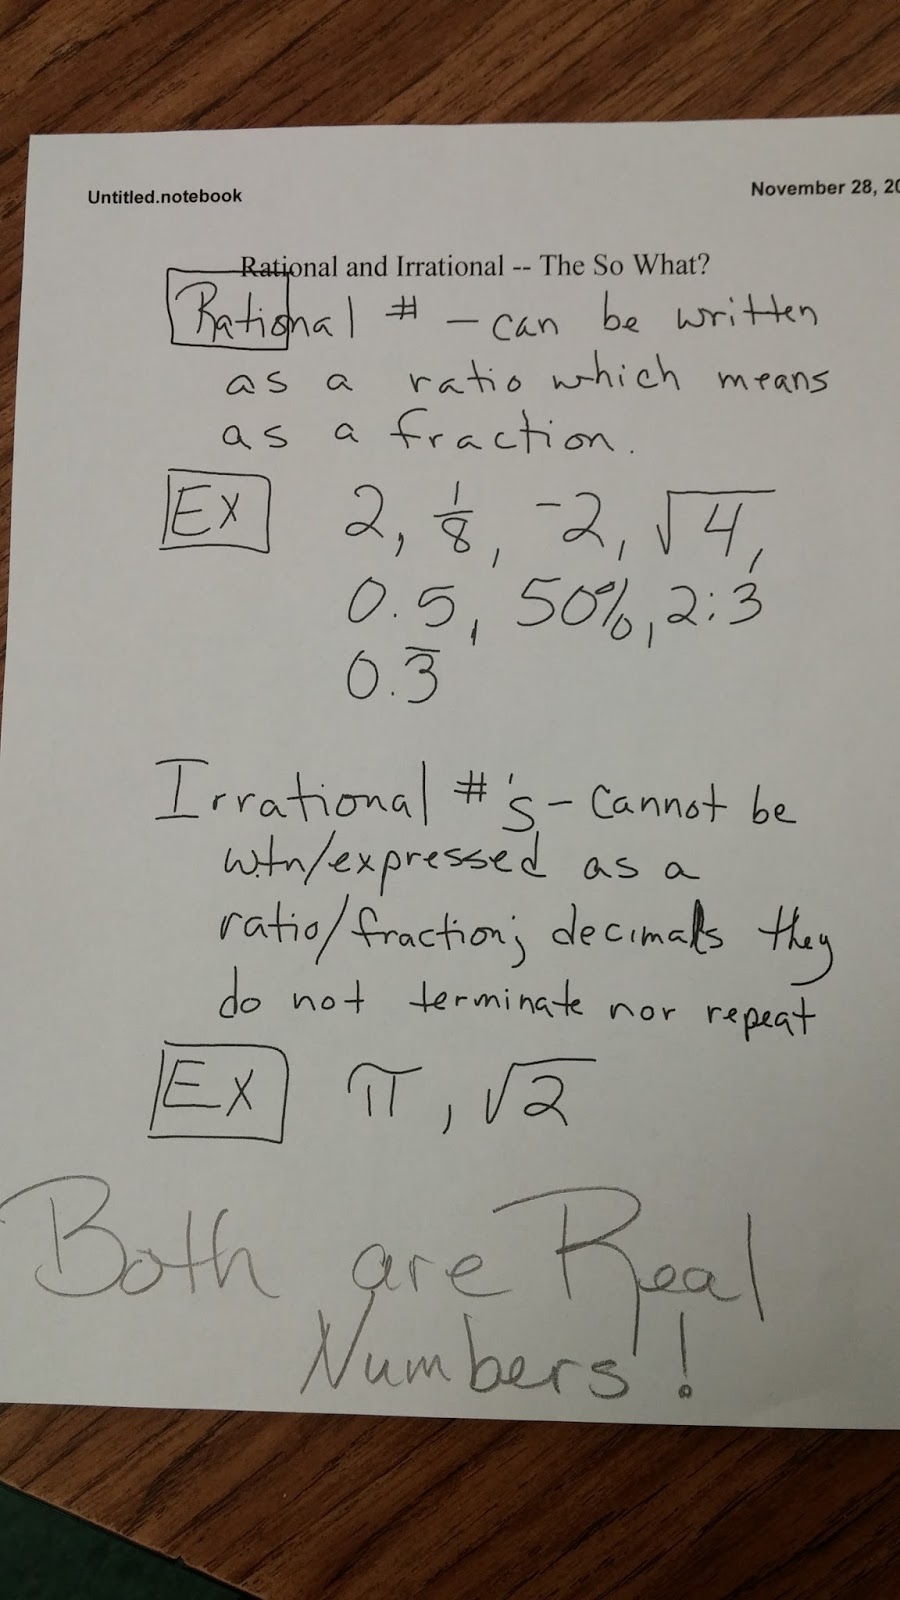 Untitled.notebook
November 28, 20
Rational and Irrational -- The So What?
Rational # - can be written
as a ratio which means
as a fraction.
Ex 2, 1/8, -2, √4,
0.5, 50%, 2:3
0.3̅
Irrational #'s - cannot be
wtn/expressed as a
ratio/fraction; decimals they
do not terminate nor repeat
Ex π, √2
Both are Real
Numbers!